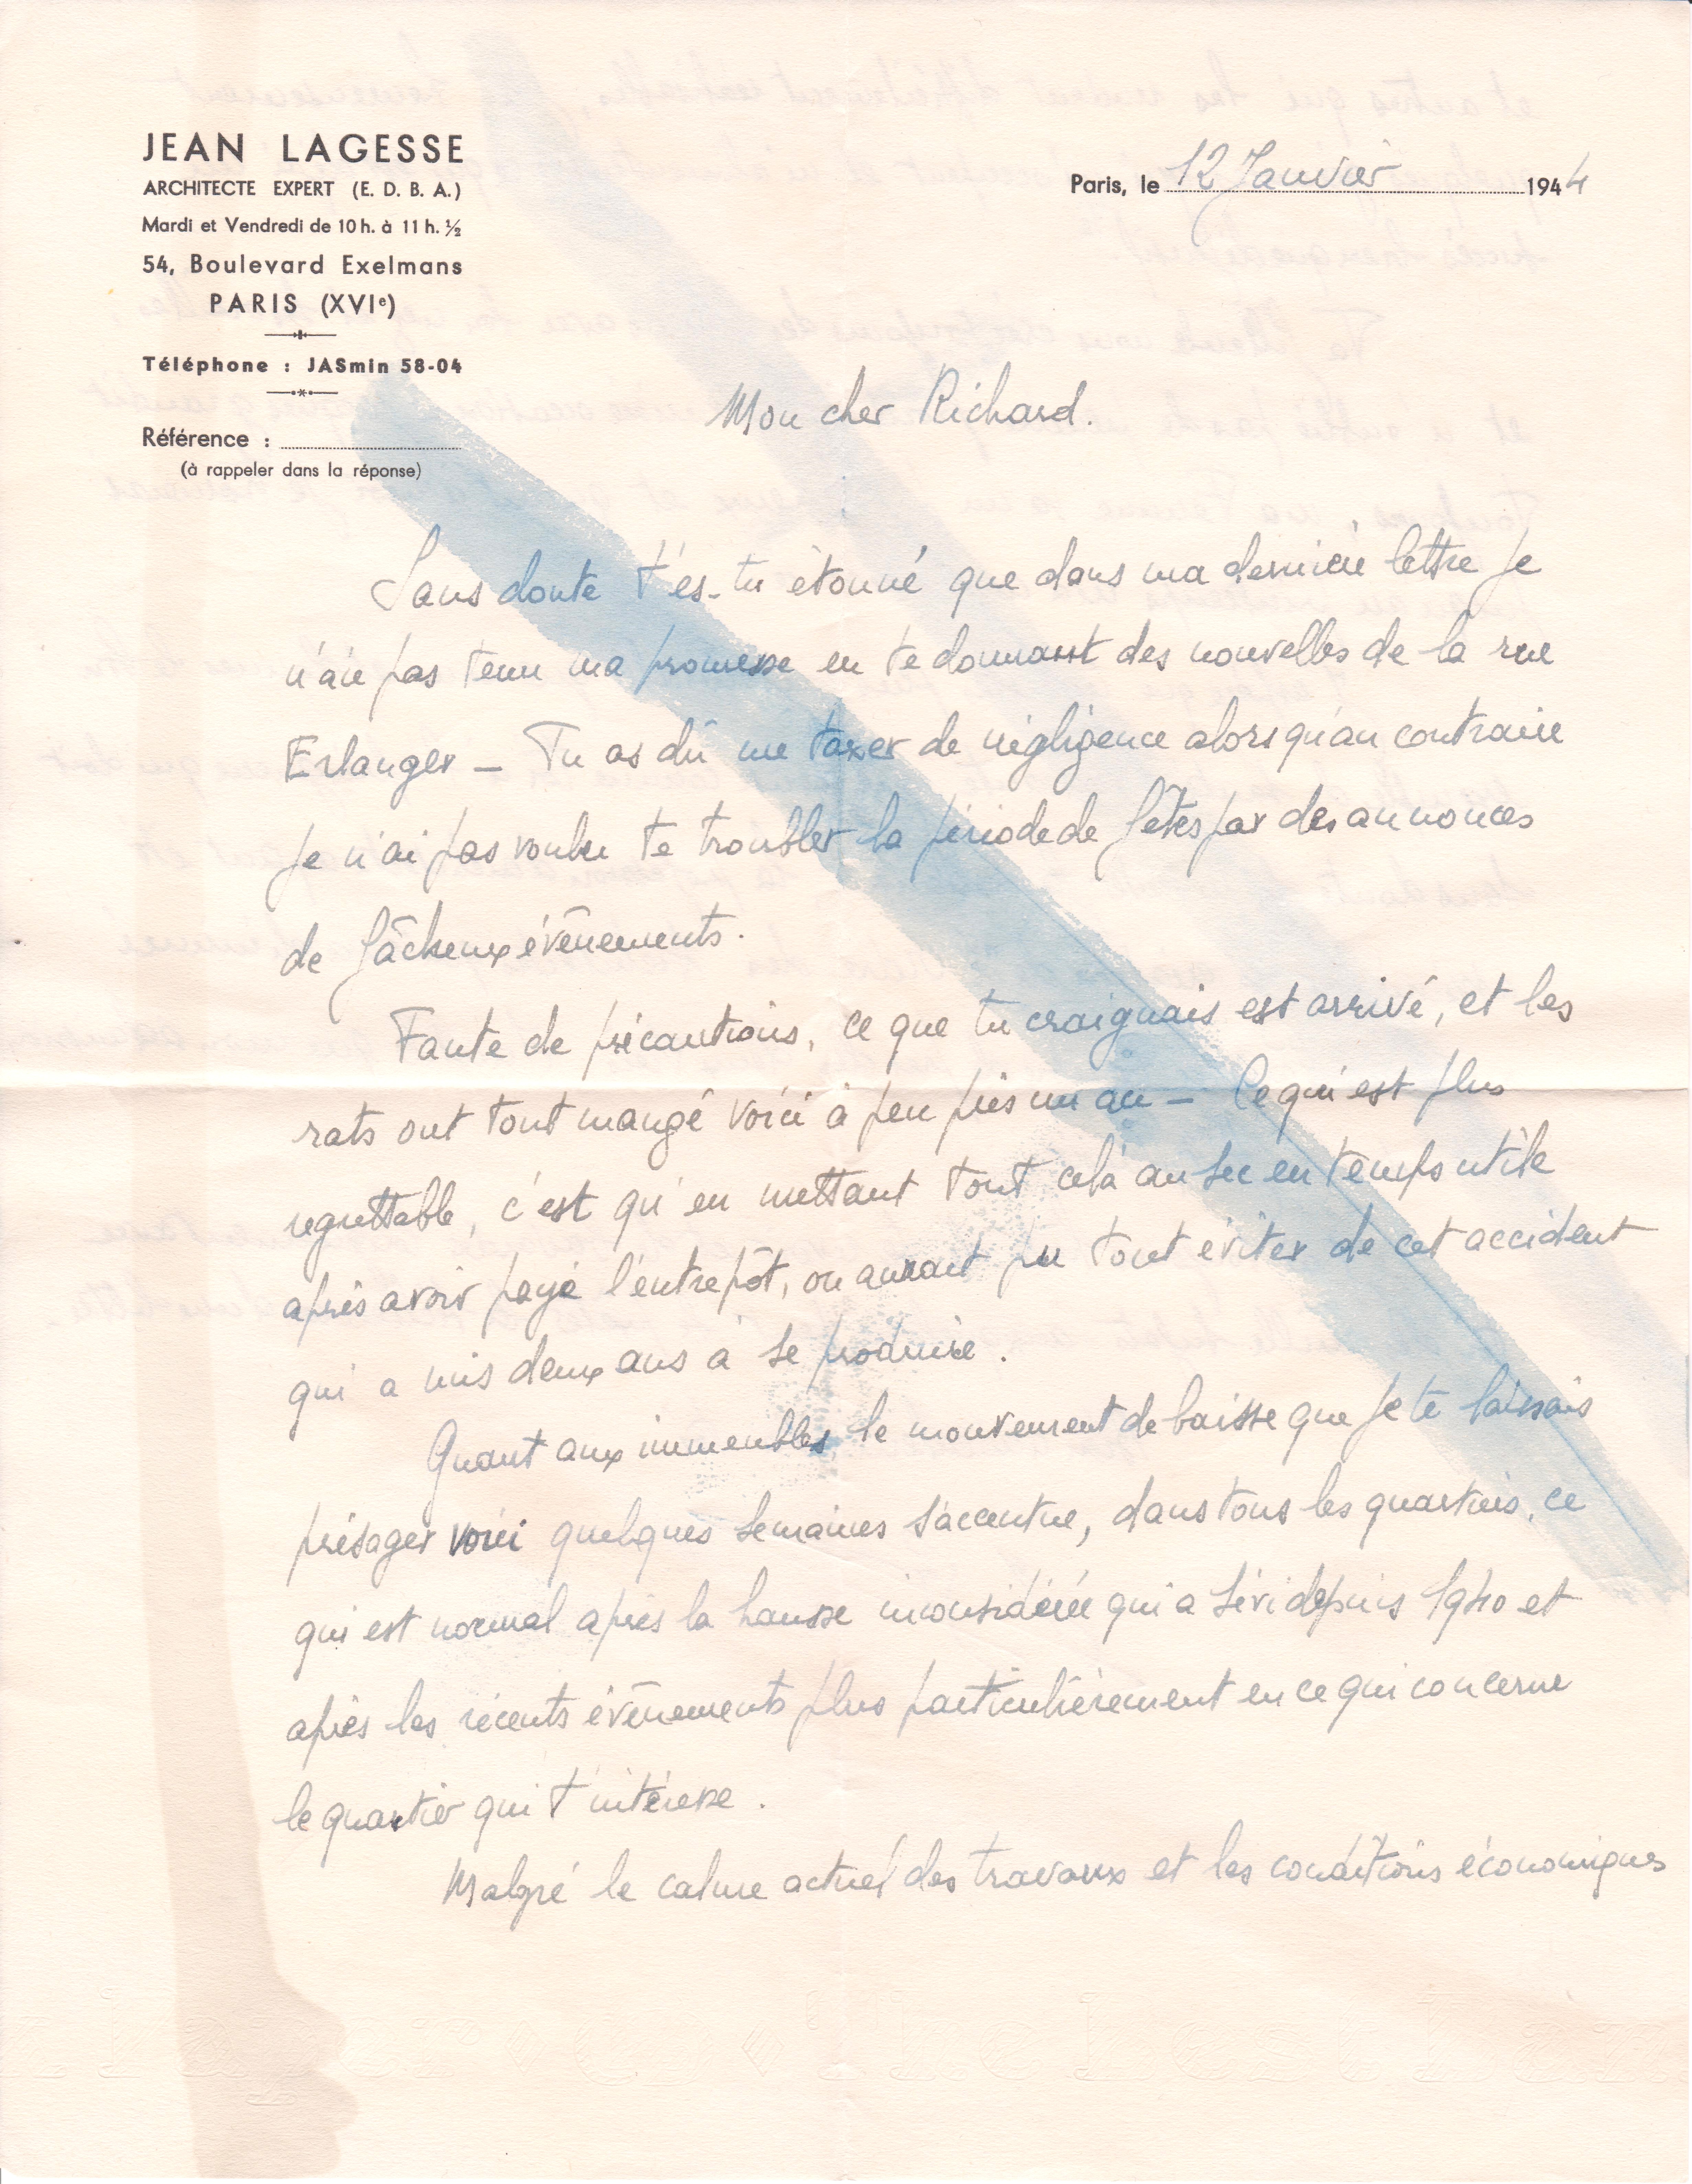 JEAN LAGESSE
ARCHITECTE EXPERT (E. D. B. A.)
Mardi et Vendredi de 10 h. à 11 h. ½
54, Boulevard Exelmans
PARIS (XVIe)
Téléphone : JASmin 58-04
Référence :
(à rappeler dans la réponse)
Paris, le 12 Janvier 1944
Mon cher Richard.
Sans doute t'es-tu étonné que dans ma dernière lettre je
n'aie pas tenu ma promesse en te donnant des nouvelles de la rue
Erlanger - Tu as dû me taxer de négligence alors qu'au contraire
je n'ai pas voulu te troubler la période de fêtes par des annonces
de fâcheux évènements.
Faute de précautions, ce que tu craignais est arrivé, et les
rats ont tout mangé voici à peu près un an - Ce qui est plus
regrettable, c'est qu'en mettant tout celà au sec en temps utile
après avoir payé l'entrepôt, on aurait pu tout éviter de cet accident
qui a mis deux ans à se produire.
Quant aux immeubles le mouvement de baisse que je te laissais
présager voici quelques semaines s'accentue, dans tous les quartiers, ce
qui est normal après la hausse inconsidérée qui a sévi depuis 1940 et
après les récents évènements plus particulièrement en ce qui concerne
le quartier qui t'intéresse.
Malgré le calme actuel des travaux et les conditions économiques